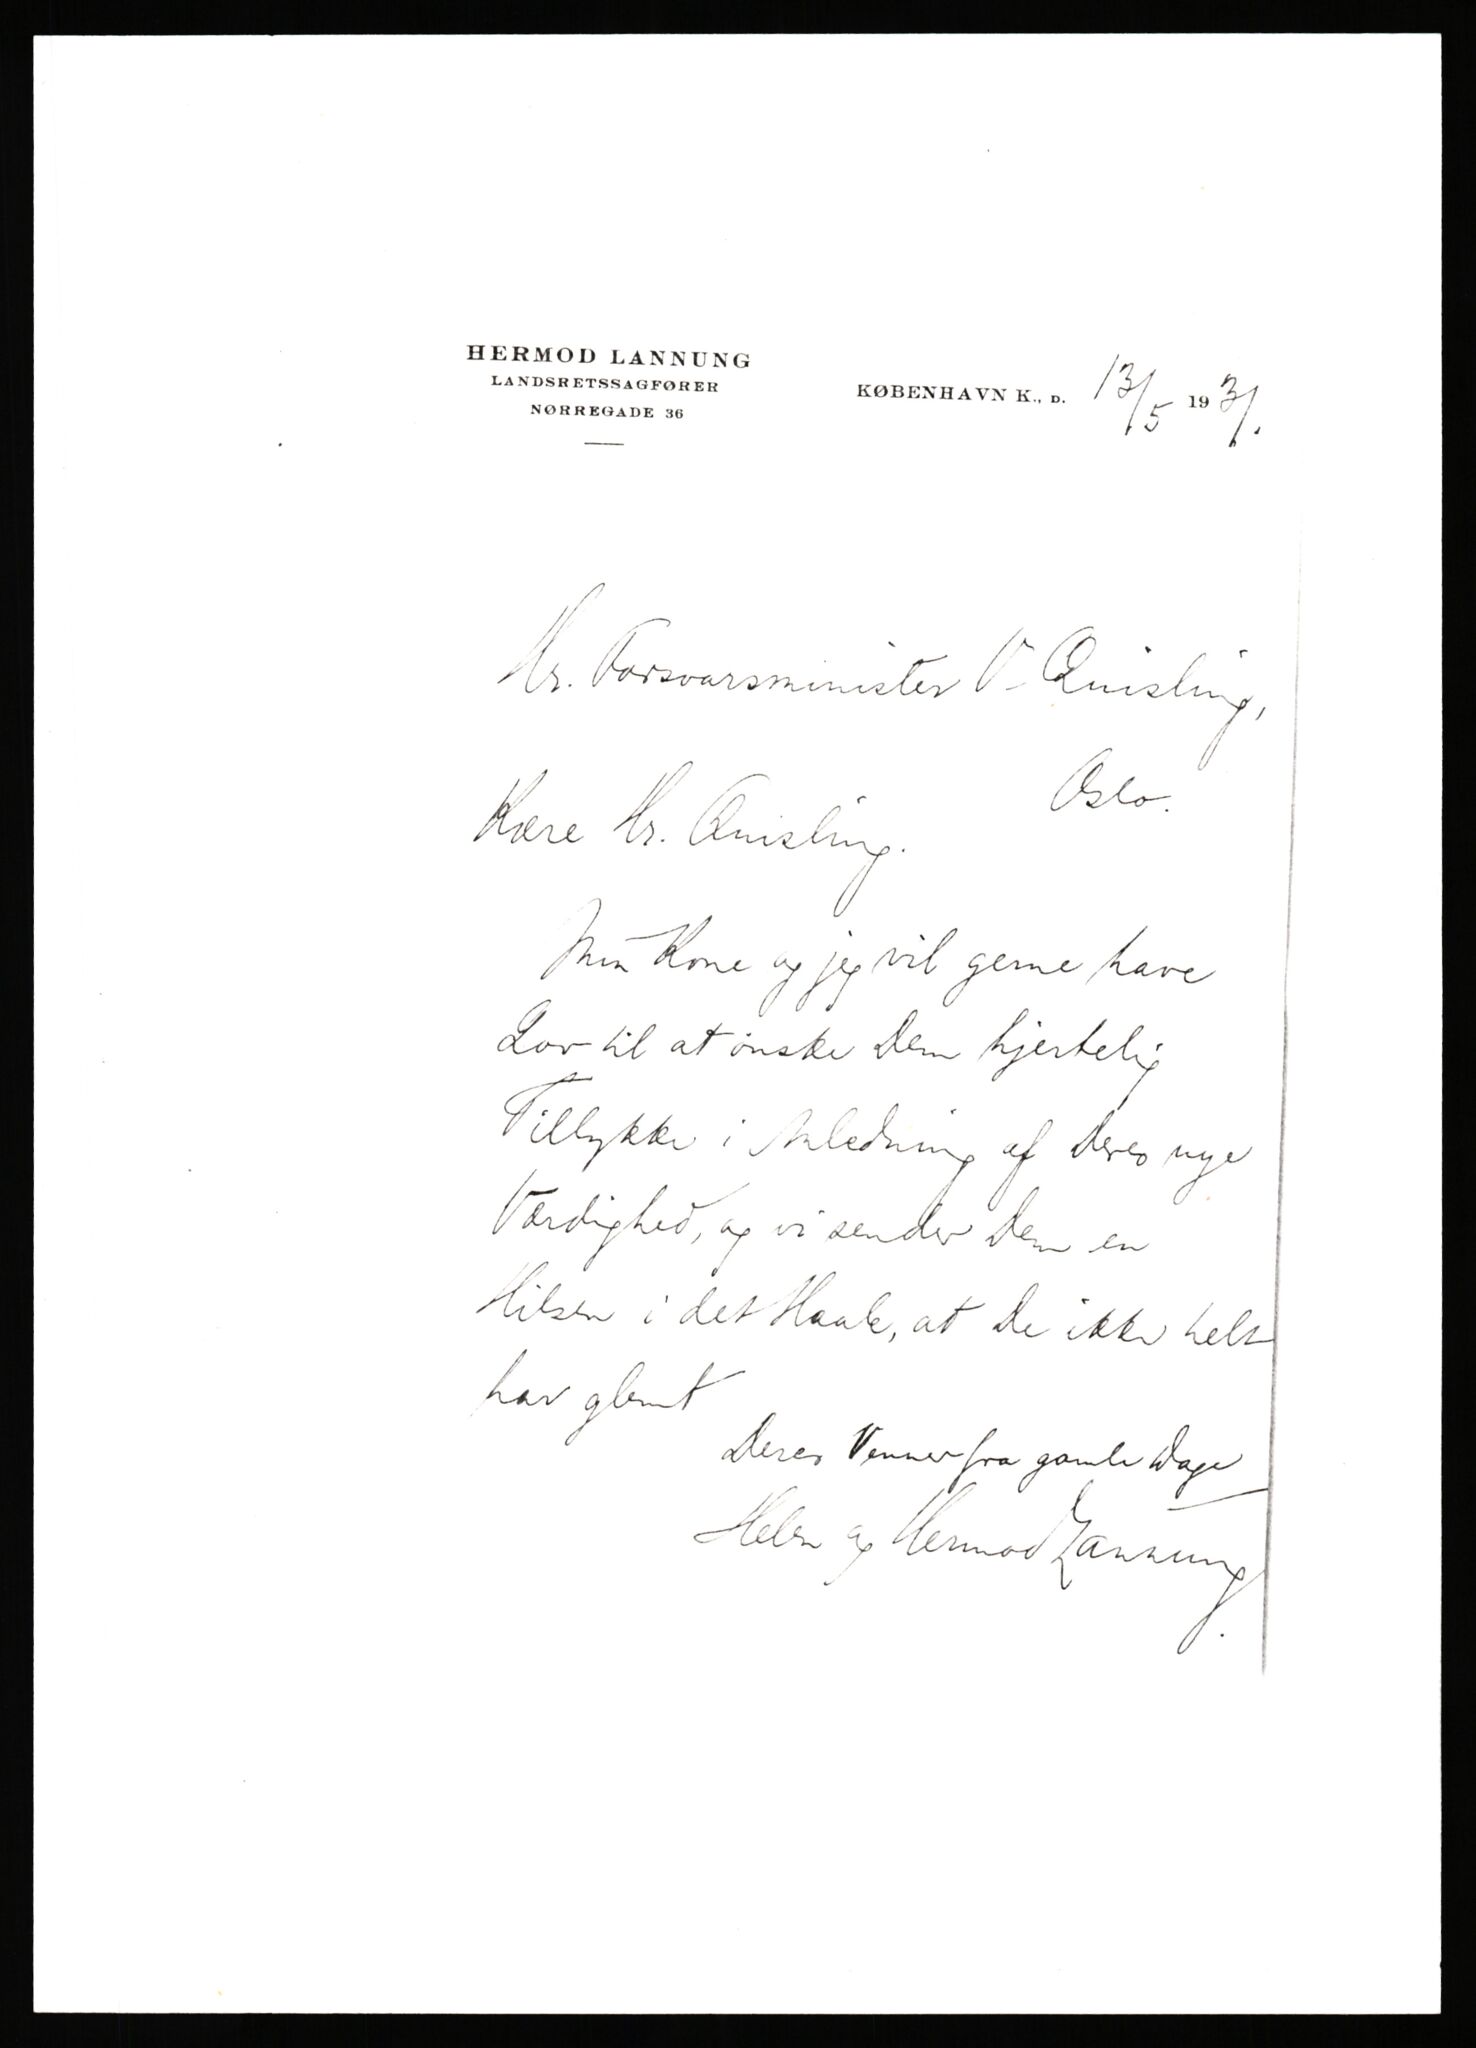 HERMOD LANNUNG
LANDSRETSSAGFØRER
NØRREGADE 36
KØBENHAVN K., D. 13/5 1931.
Hr. Forsvarsminister V. Quisling,
Oslo.
Kære Hr. Quisling.
Min Kone og jeg vil gerne have
Lov til at ønske Dem hjertelig
Tillykke i Anledning af Deres nye
Værdighed, og vi sender Dem en
Hilsen i det Haab, at De ikke helt
har glemt
Deres Venner fra gamle Dage
Helen og Hermod Lannung.